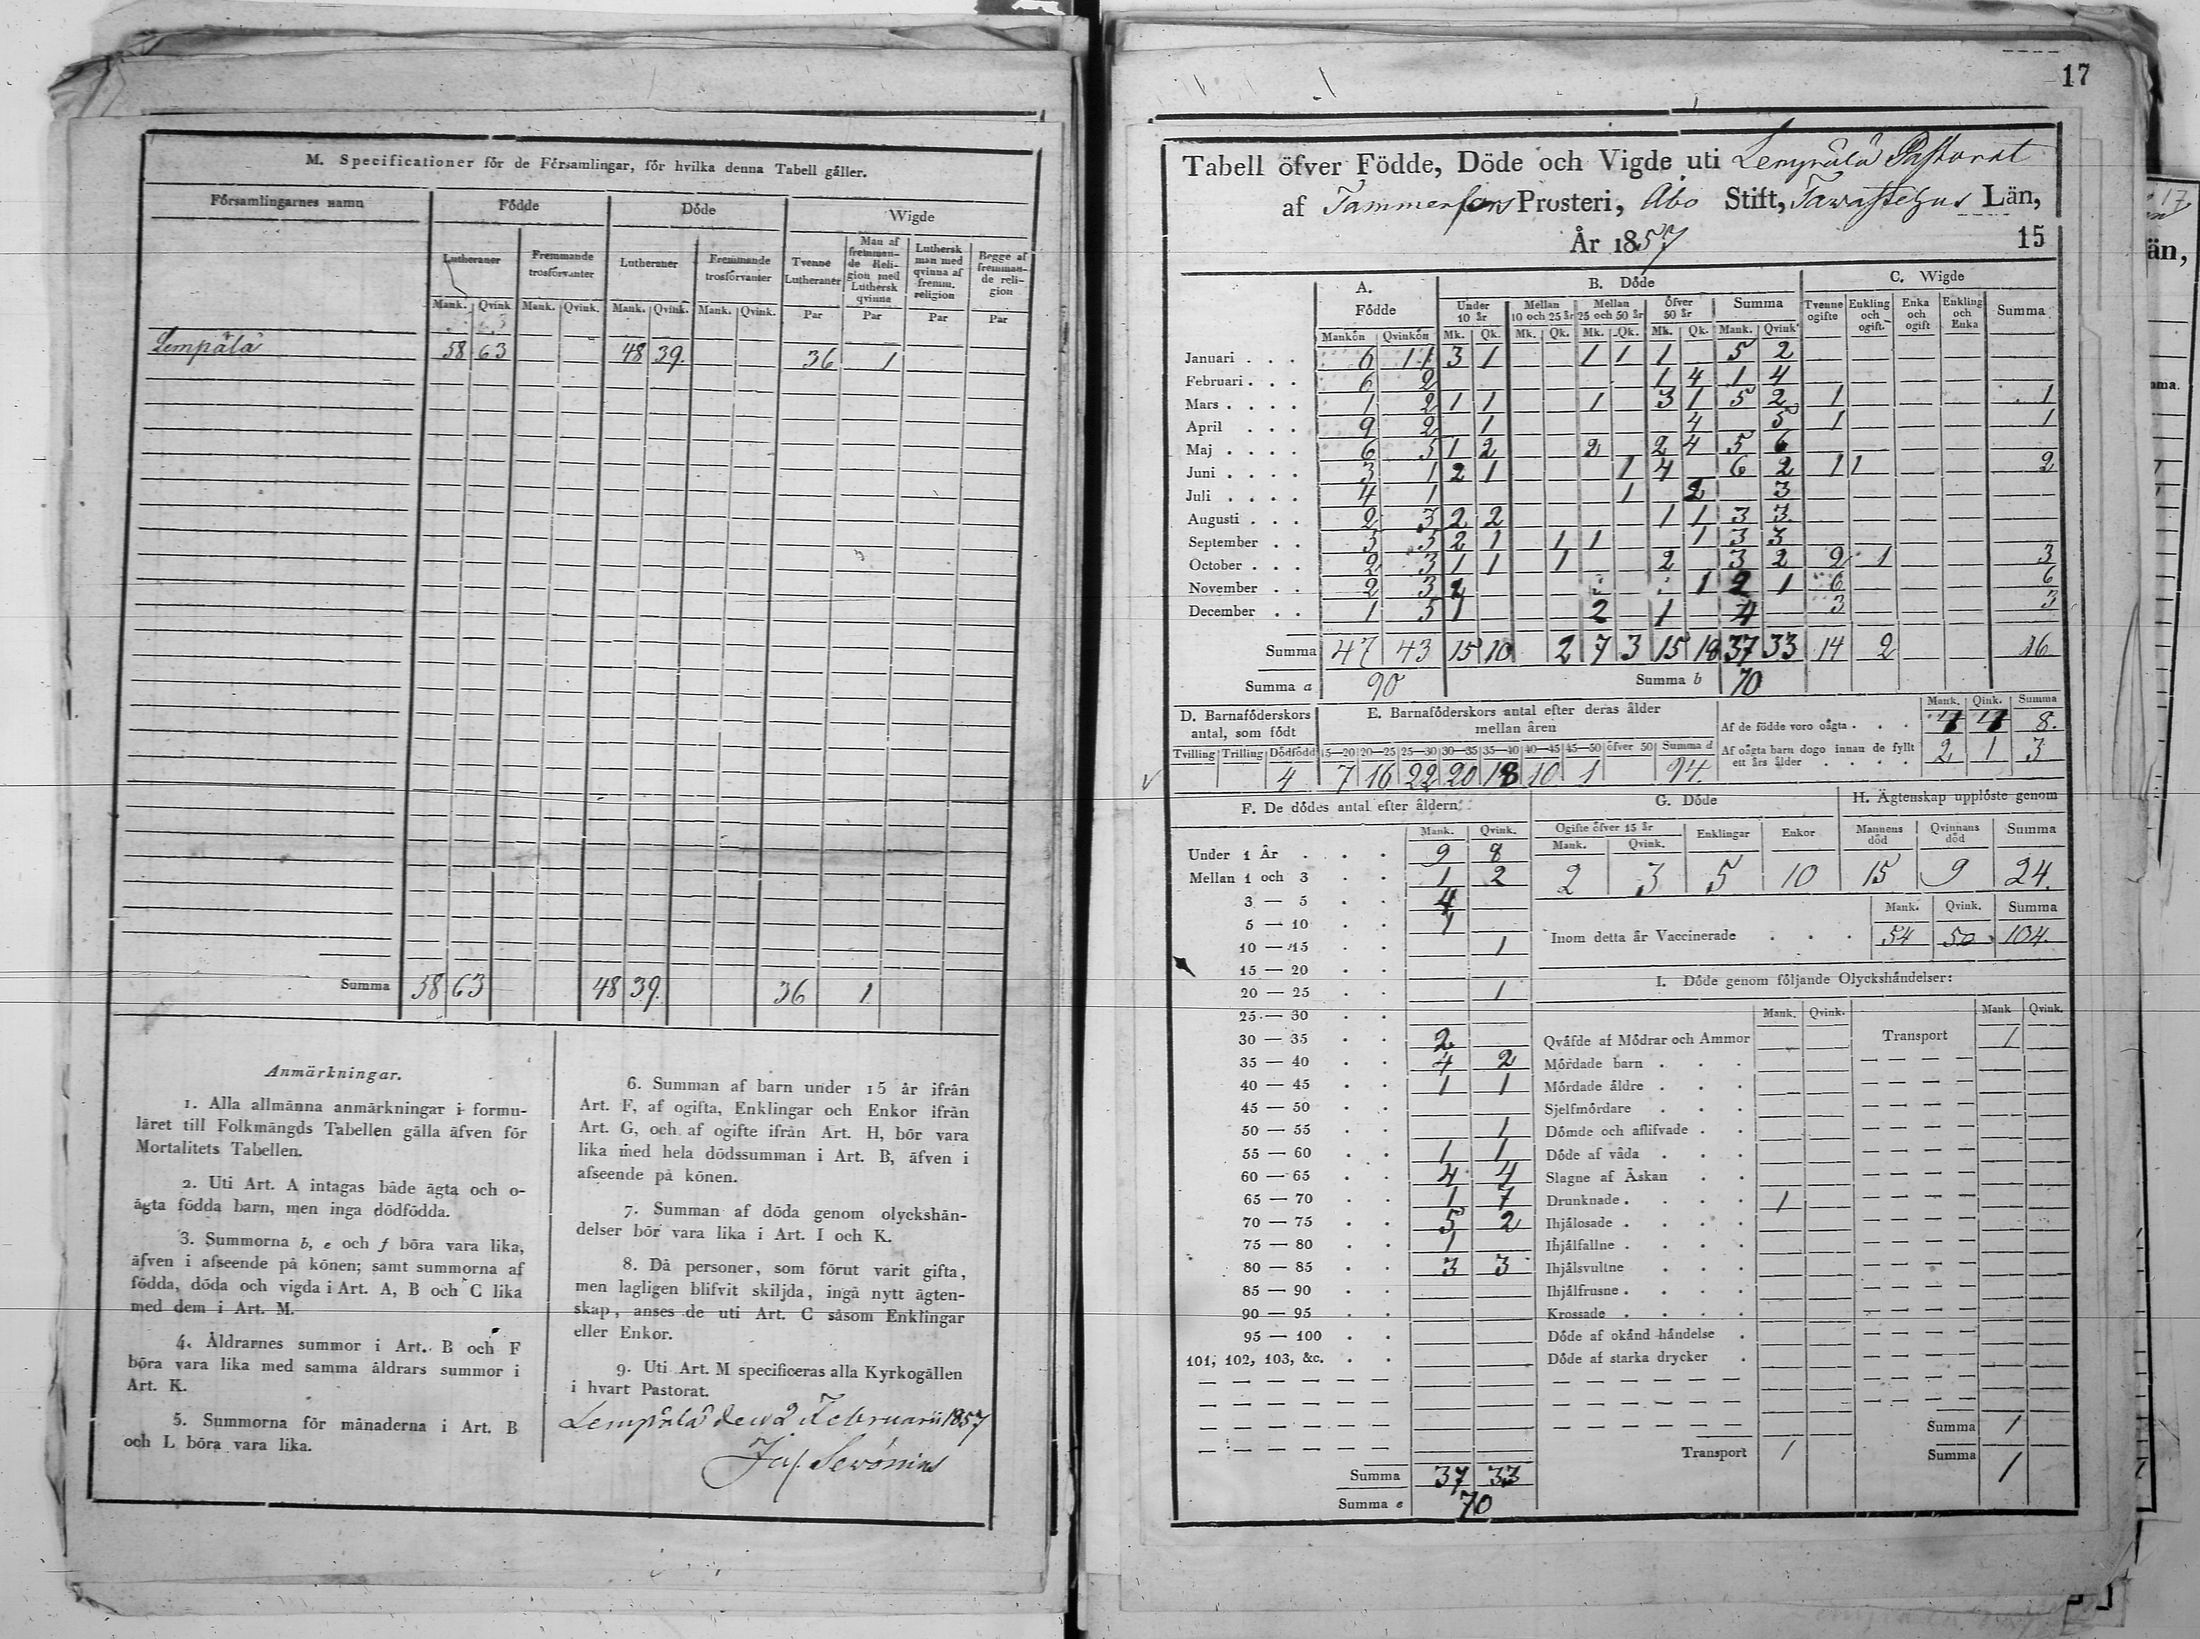 M. Specificationer för de Församlingar, för hvilka denna Tabell gäller.
Församlingarnes namn Födde Döde Wigde
Lutheraner Fremmande trosförvanter Lutheraner Fremmande trosförvanter Tvenne Lutheraner Man af fremmande Religion med Luthersk qvinna Luthersk man med qvinna af fremm. religion Begge af fremmande religion
Mank. Qvink. Mank. Qvink. Mank. Qvink. Mank. Qvink. Par Par Par Par
Lempälä 58 63 48 39. 36 1
Summa 58 63 48 39. 36 1
Anmärkningar.
1. Alla allmänna anmärkningar i formu-
läret till Folkmängds Tabellen gälla äfven för
Mortalitets Tabellen.
2. Uti Art. A intagas både ägta och o-
ägta födda barn, men inga dödfödda.
3. Summorna b, e och f böra vara lika,
äfven i afseende på könen; samt summorna af
födda, döda och vigda i Art. A, B och C lika
med dem i Art. M.
4. Åldrarnes summor i Art. B och F
böra vara lika med samma åldrars summor i
Art. K.
5. Summorna för månaderna i Art. B
och L böra vara lika.
6. Summan af barn under 15 år ifrån
Art. F, af ogifta, Enklingar och Enkor ifrån
Art. G, och af ogifte ifrån Art. H, bör vara
lika med hela dödssumman i Art. B, äfven i
afseende på könen.
7. Summan af döda genom olyckshän-
delser bör vara lika i Art. I och K.
8. Då personer, som förut varit gifta,
men lagligen blifvit skiljda, ingå nytt ägten-
skap, anses de uti Art. C såsom Enklingar
eller Enkor.
9. Uti Art. M specificeras alla Kyrkogällen
i hvart Pastorat.
Lempälä den 2 Februarii 1857
17
Tabell öfver Födde, Döde och Vigde uti Lempälä Pastorat
af Tammerfors Prosteri, Åbo Stift, Tawastehus Län,
År 1857 15
A. Födde B. Döde C. Wigde
Under 10 år Mellan 10 och 25 år Mellan 25 och 50 år Öfver 50 år Summa Tvenne ogifte Enkling och ogift. Enka och ogift Enkling och Enka Summa
Mankön Qvinkön Mk. Qk. Mk. Qk. Mk. Qk. Mk. Qk. Mank. Qvink
Januari 6 11 3 1 1 1 1 5 2
Februari 6 2 1 4 1 4
Mars 1 2 1 1 1 3 1 5 2 1 1
April 9 2 1 4 5 1 1
Maj 6 5 1 2 2 2 4 5 6
Juni 3 1 2 1 1 4 6 2 1 1 2
Juli 4 1 1 2 3
Augusti 2 3 2 2 1 1 3 3
September 5 5 2 1 1 1 1 3 3
October 2 3 1 1 1 2 3 2 2 1 3
November 2 3 2 1 2 1 6 6
December 1 5 1 2 1 4 3 3
Summa 47 43 15 10 2 7 3 15 18 37 33 14 2 16
Summa a 90 Summa b 70
D. Barnaföderskors antal, som födt
Tvilling Trilling Dödfödd
4
E. Barnaföderskors antal efter deras ålder mellan åren
15—20 20—25 25—30 30—35 35—40 40—45 45—50 öfver 50 Summa d
7 16 22 20 18 10 1 94
Mank. Qink. Summa
Af de födde voro oägta 4 4 8.
Af oägta barn dogo innan de fyllt ett års ålder 2 1 3
F. De dödes antal efter åldern.
Mank. Qvink.
Under 1 År 9 8
Mellan 1 och 3 1 2
3 — 5 4
5 — 10 1
10 — 15 1
15 — 20
20 — 25 1
25 — 30
30 — 35 2
35 — 40 4 2
40 — 45 1 1
45 — 50
50 — 55 1
55 — 60 1 1
60 — 65 4 4
65 — 70 1 7
70 — 75 5 2
75 — 80 1
80 — 85 3 3
85 — 90
90 — 95
95 — 100
101, 102, 103, &c.
Summa 37 33
Summa e 70
G. Döde
Ogifte öfver 15 år Enklingar Enkor
Mank. Qvink.
2 3 5 10
H. Ägtenskap upplöste genom
Mannens död Qvinnans död Summa
15 9 24.
Mank. Qvink. Summa
Inom detta år Vaccinerade 54 50 104.
I. Döde genom följande Olyckshändelser:
Mank. Qvink. Mank Qvink.
Qväfde af Mödrar och Ammor Transport 1
Mördade barn
Mördade äldre
Sjelfmördare
Dömde och aflifvade
Döde af våda
Slagne af Åskan
Drunknade 1
Ihjälosade
Ihjälfallne
Ihjälsvultne
Ihjälfrusne
Krossade
Döde af okänd händelse
Döde af starka drycker
Summa 1
Transport 1 Summa 1